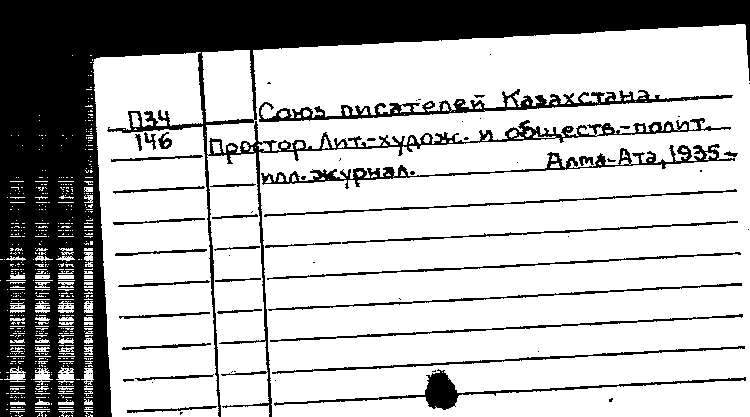 П34 Союз писателей Казахстана.
146 Простор. Лит.-худож. и обществ.-полит.
илл. журнал. Алма-Ата, 1935-